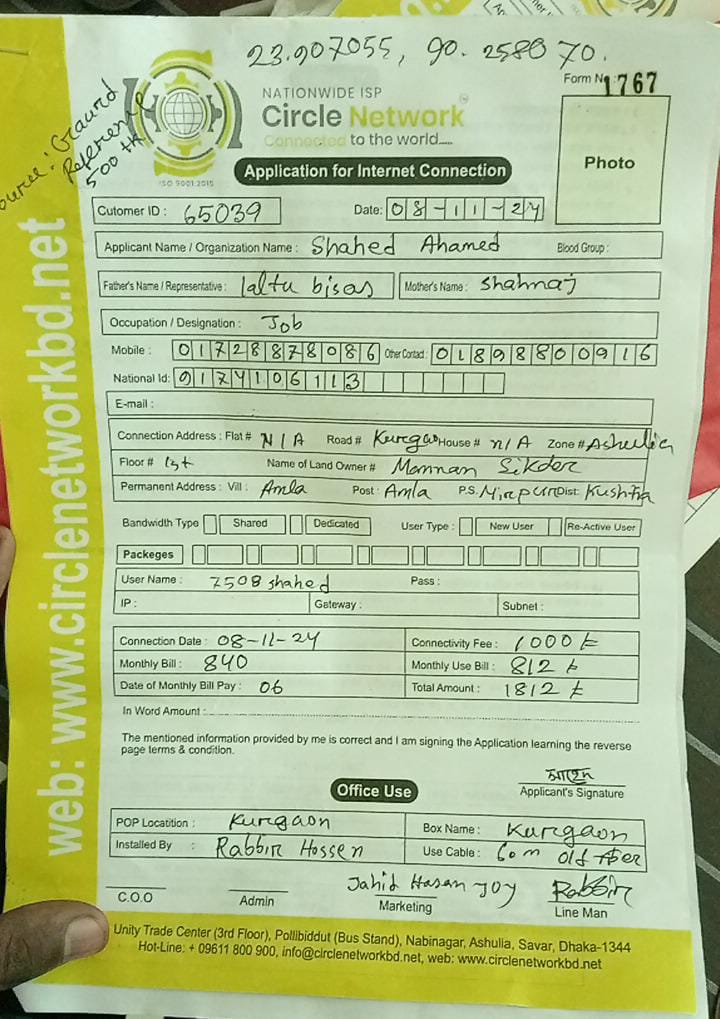 23.907055, 90.258070.
Form No 1767
NATIONWIDE ISP
Circle Network
Connected to the world.....
ISO 9001:2015
Reference
500 tk
Application for Internet Connection
Photo
Cutomer ID : 65039 Date: 08-11-24
Applicant Name / Organization Name : Shahed Ahamed Blood Group :
Father's Name / Representative : laltu bisas Mother's Name : Shahnaj
Occupation / Designation : Job
Mobile : 01728878086 Other Contact : 01898800916
National Id: 9174106113
E-mail :
Connection Address : Flat # N/A Road # Kurgao House # n/A Zone # Ashulia
Floor # 1st Name of Land Owner # Mannan Sikder
Permanent Address : Vill : Amla Post : Amla P.S. Mirpur Dist: Kushtia
Bandwidth Type Shared Dedicated User Type : New User Re-Active User
Packeges
User Name : 7508shahed Pass :
IP : Gateway : Subnet :
Connection Date : 08-11-24 Connectivity Fee : 1000 tk
Monthly Bill : 840 Monthly Use Bill : 812 tk
Date of Monthly Bill Pay : 06 Total Amount : 1812 tk
In Word Amount :
The mentioned information provided by me is correct and I am signing the Application learning the reverse
page terms & condition.
Office Use
শাহেদ
Applicant's Signature
POP Locatition : Kurgaon Box Name : Kurgaon
Installed By : Rabbir Hossen Use Cable : 60m Old
Jahid Hasan Joy
C.O.O Admin Marketing Line Man
Unity Trade Center (3rd Floor), Pollibiddut (Bus Stand), Nabinagar, Ashulia, Savar, Dhaka-1344
Hot-Line: + 09611 800 900, info@circlenetworkbd.net, web: www.circlenetworkbd.net
web: www.circlenetworkbd.net